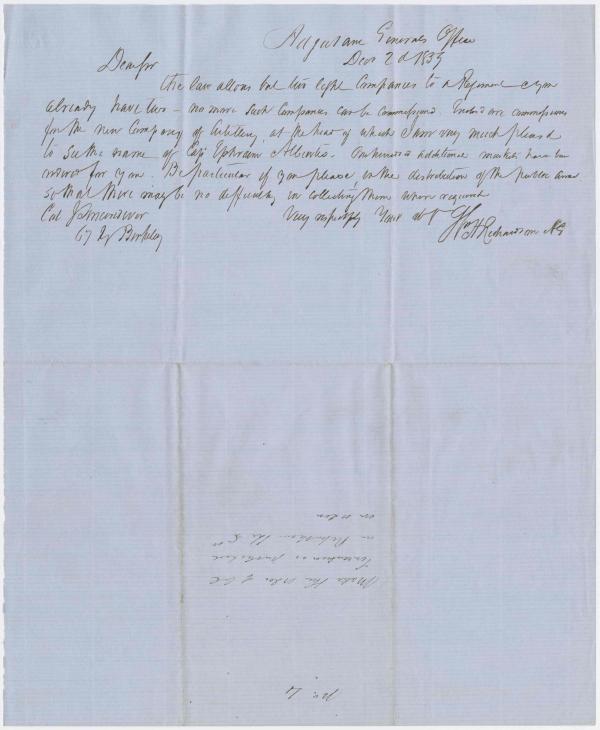 Adjutant Generals Office
Decr 2d 1859
Dear Sir
The law allows but two light Companies to a Regiment & you
already have two – no more such Companies can be commissioned. Enclosed are commissions
for the new Company of Artillery, at the head of which I am very much pleased
to see the name of Cap Ephraim Alburtis. One hundred additional muskets have been
for you. Be particular if you please, in the distribution of the public arms
so that there may be no difficulty in collecting them when required
Very respectfy Your
Col
Wm H Richardson AG
67 Rg Berkeley
Made the order of
on
No. 6